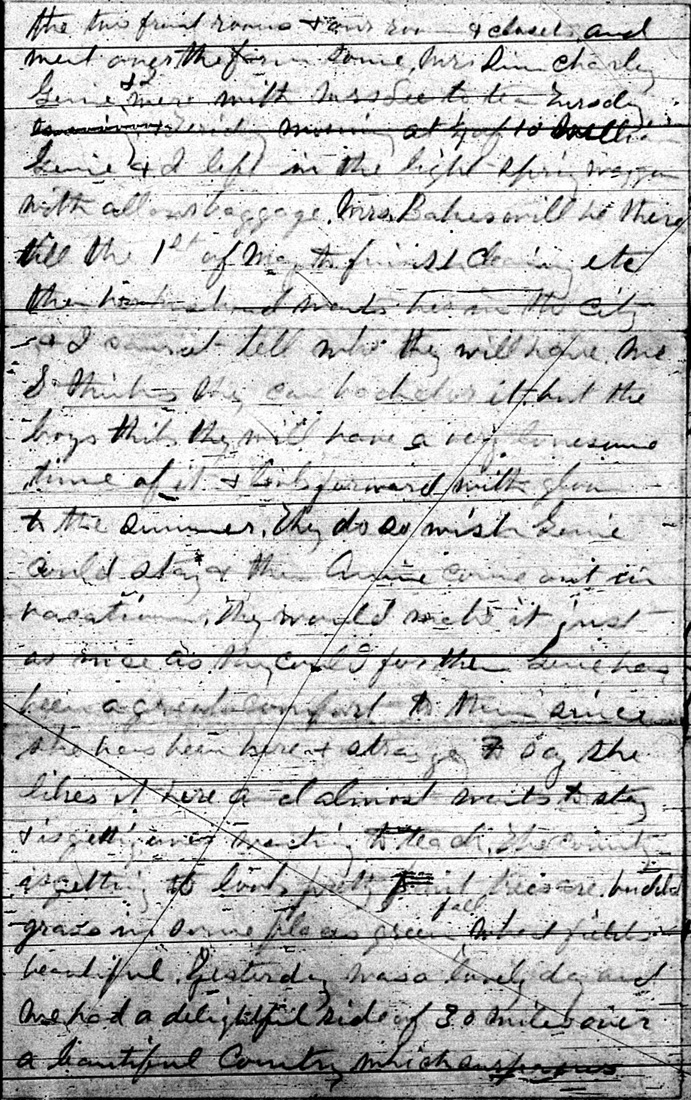 the two front rooms & our room & closets and
went over the farm some, Mrs Sim charley
Genie & I were with Mrs See to tea Tuesday
Friday morning at ¼ of 10 William
Genie & I left in the light spring waggon
with all our baggage. Mrs Baker will be there
till the 1st of May to finish cleaning etc
then her husband wants her in the city
& I cannot tell who they will have. Mc
S thinks they can bachelor it. but the
boys think they will have a very lonesome
time of it & look forward with gloom
to the summer. They do so wish Genie
could stay & then Annie come out in
vacation. They would make it just
as nice as they could for them Genie has
been a great comfort to them since
she has been here & strange to say she
likes it here and almost wants to stay
& is getting over wanting to teach. The country
is getting to look pretty fruit trees are budded
grass in some places green fall wheat fields
beautiful. Yesterday was a lovely day and
we had a delightful ride of 30 miles over
a beautiful Country which